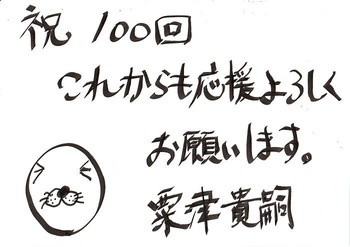 祝 100回
これからも応援よろしく
お願いします。
粟津貴嗣